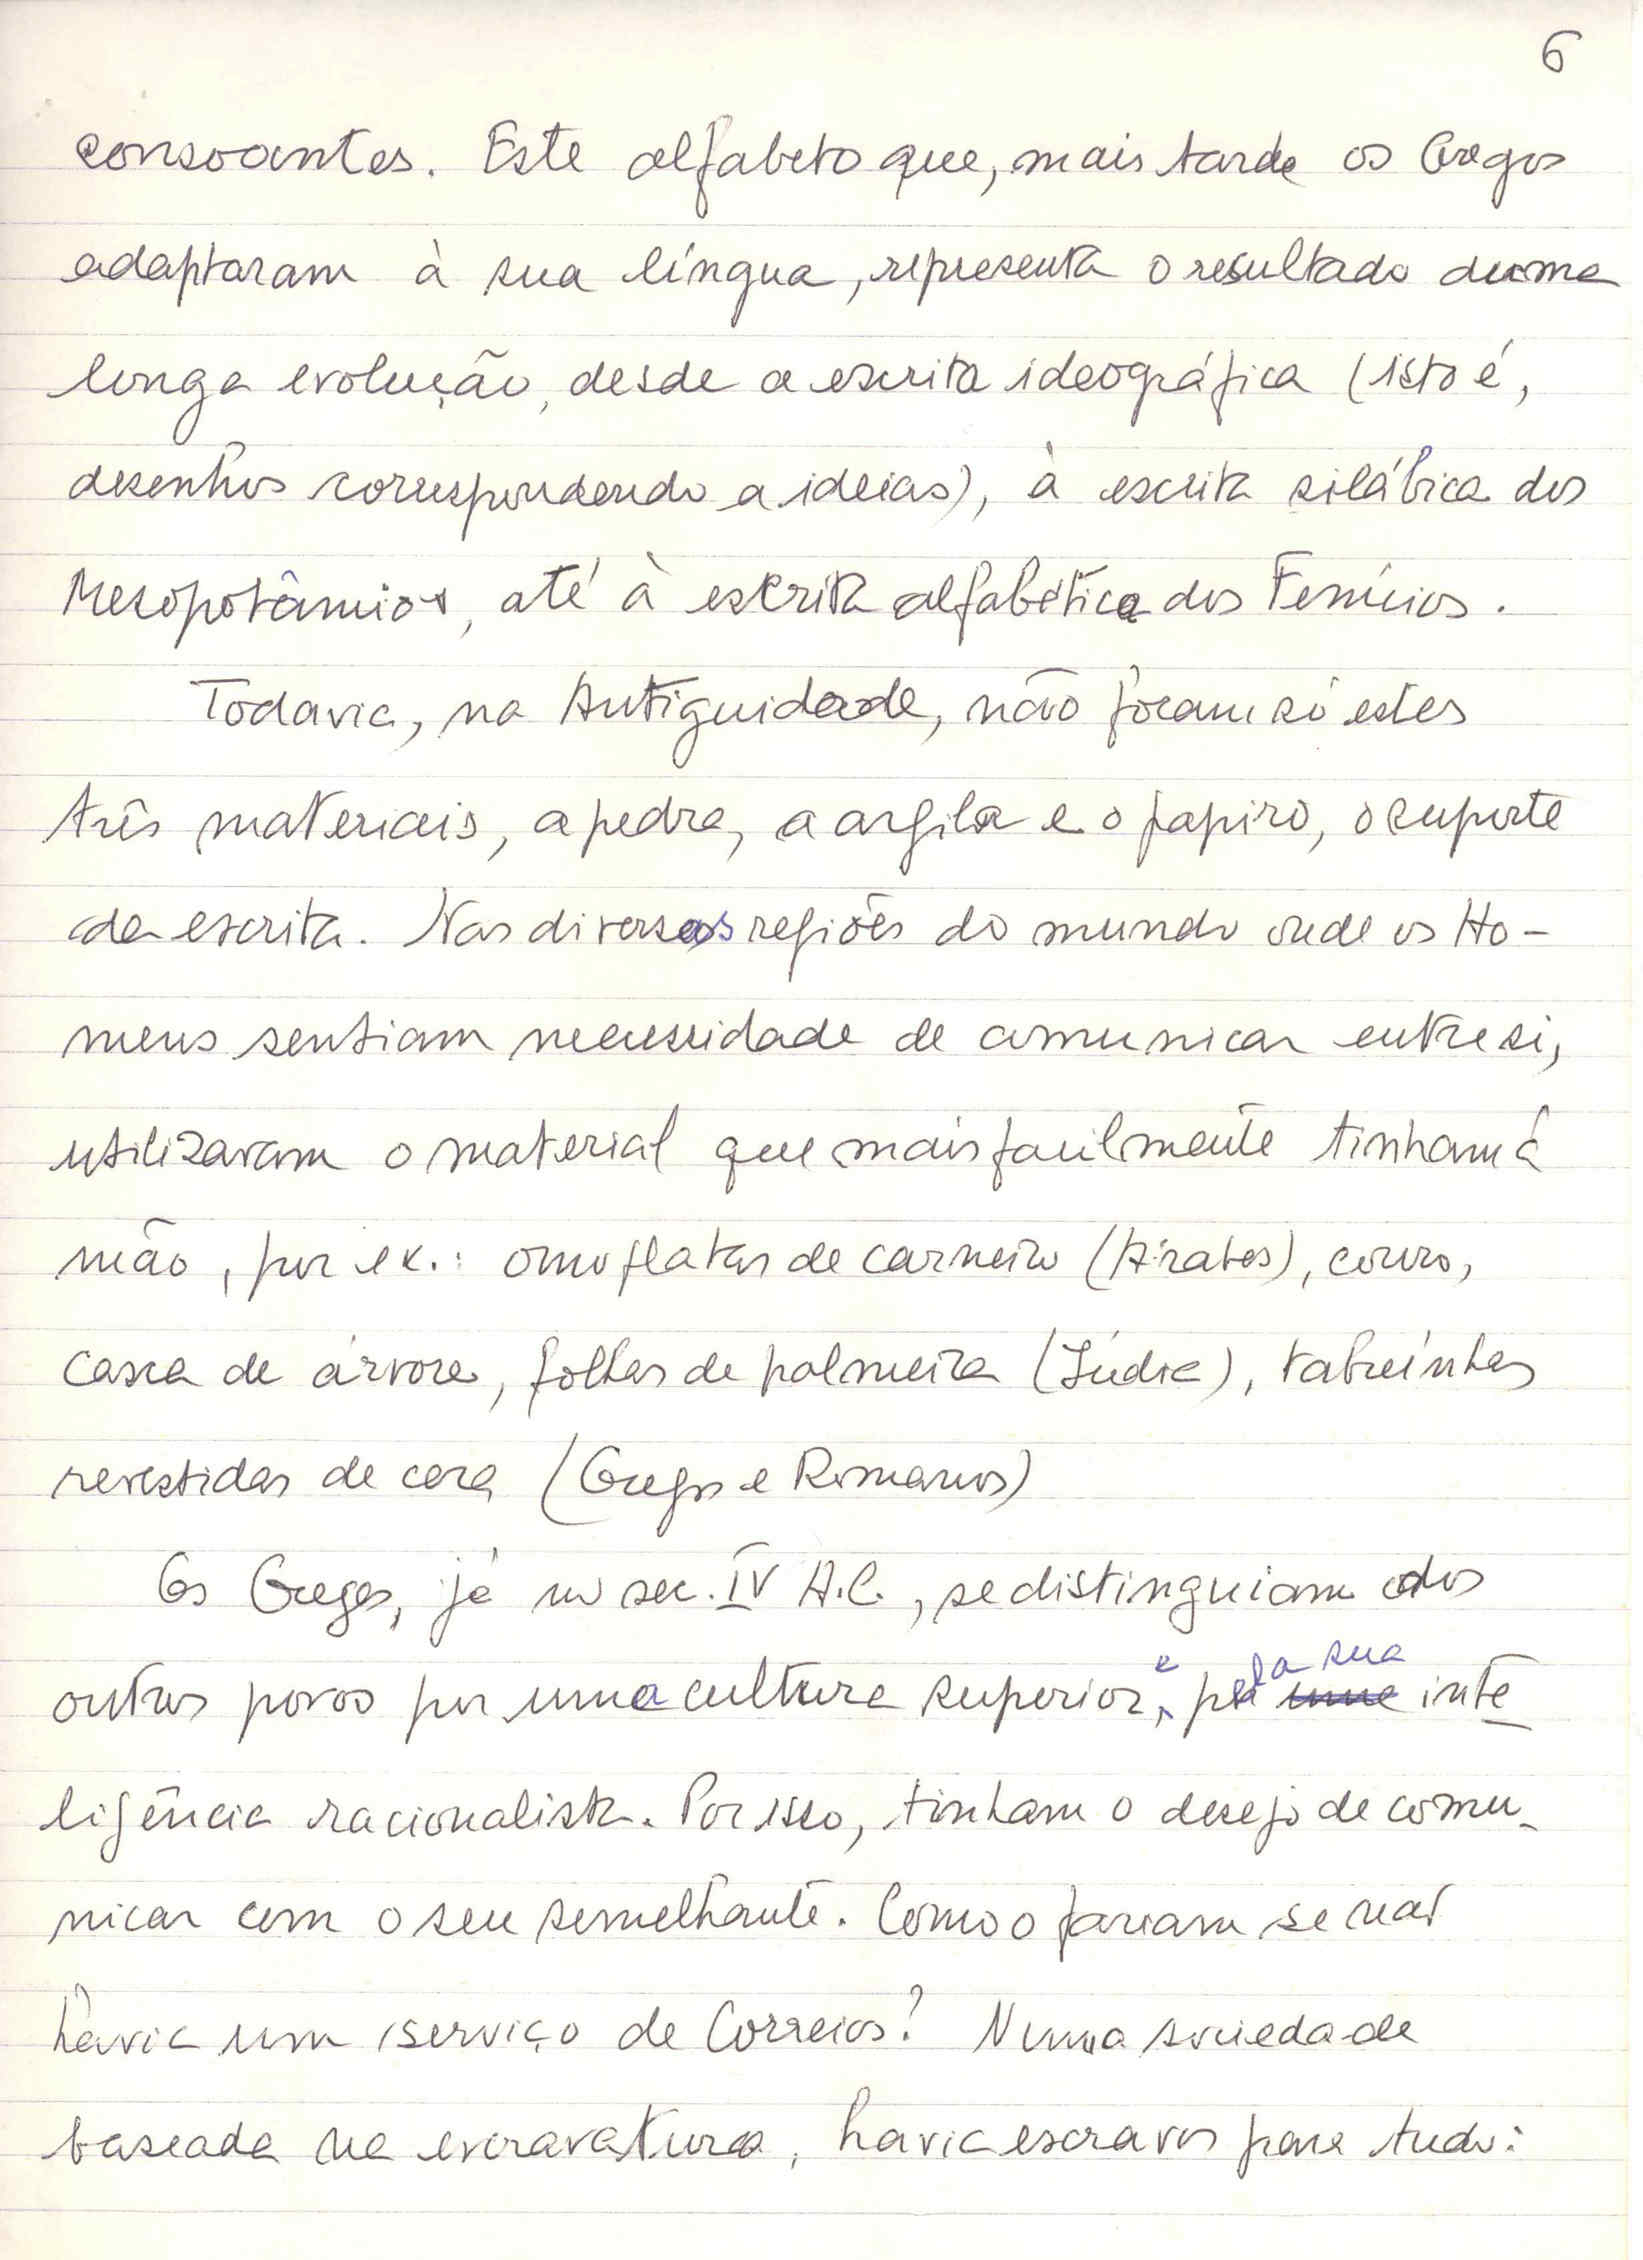 6
consoantes. Este alfabeto que, mais tarde os Gregos
adaptaram à sua língua, representa o resultado duma
longa evolução, desde a escrita ideográfica (isto é,
desenhos correspondendo a ideias), à escrita silábica dos
Mesopotâmios, até à escrita alfabética dos Fenícios.
Todavia, na Antiguidade, não foram só estes
três materiais, a pedra, a argila e o papiro, o suporte
da escrita. Nas diversas regiões do mundo onde os Ho-
mens sentiam necessidade de comunicar entre si,
utilizavam o material que mais facilmente tinham à
mão, por ex.: omoplatas de carneiro (Árabes), couro,
casca de árvore, folhas de palmeira (Índia), tabuínhas
revestidas de cera (Gregos e Romanos)
Os Gregos, já no sec. IV A.C., se distinguiam dos
outros povos por uma cultura superior, e pela sua inte-
ligência racionalista. Por isso, tinham o desejo de comu-
nicar com o seu semelhante. Como o fariam se não
havia um serviço de Correios? Numa sociedade
baseada na escravatura, havia escravos para tudo: